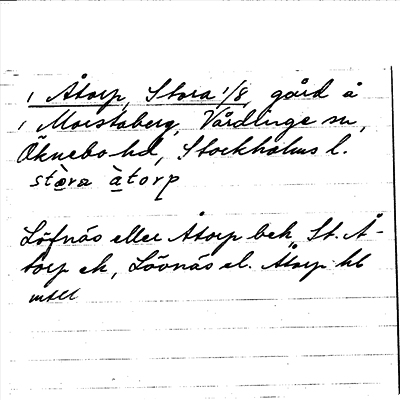 1 Åtorp, Stora 1/8, gård å
1 Morstaberg, Vårdinge sn,
Öknebo hd, Stockholms l.
stòra àtorp
Löfnäs eller Åtorp bek, St. Å-
torp ek, Lövnäs el. Åtorp hl
mtll